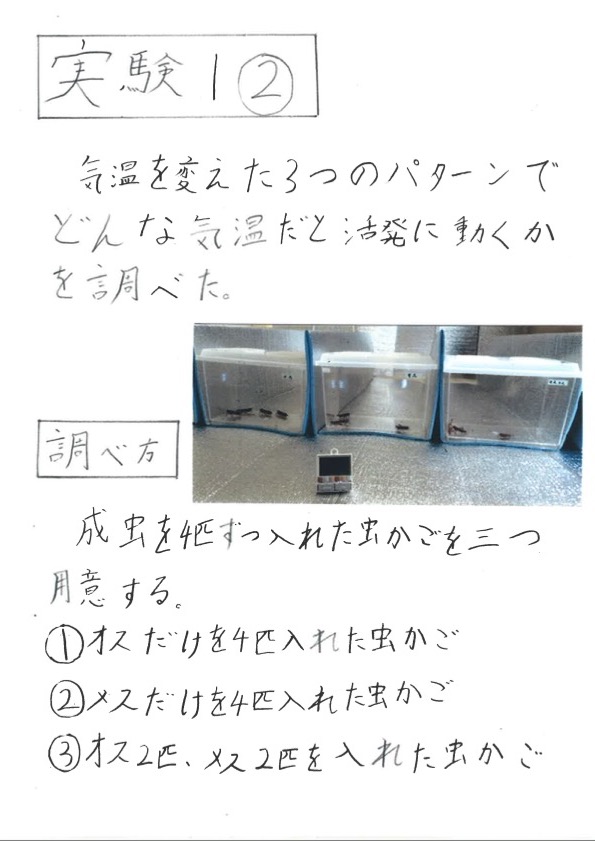 実験1②
気温を変えた3つのパターンで
どんな気温だと活発に動くか
を調べた。
調べ方
成虫を4匹ずつ入れた虫かごを三つ
用意する。
①オスだけを4匹入れた虫かご
②メスだけを4匹入れた虫かご
③オス2匹、メス2匹を入れた虫かご